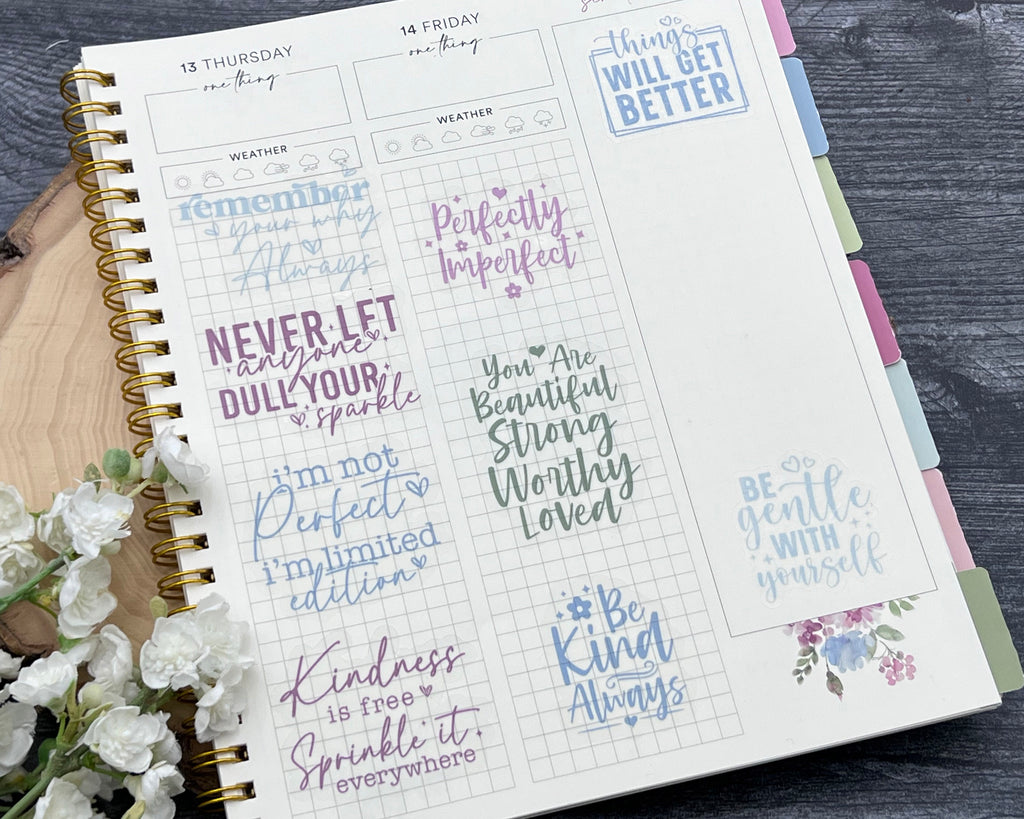 13 THURSDAY
one thing
WEATHER
remember
your why
Always
NEVER LET
anyone
DULL YOUR
sparkle
i'm not
Perfect
i'm limited
edition
Kindness
is free
Sprinkle it
everywhere
14 FRIDAY
one thing
WEATHER
Perfectly
Imperfect
You Are
Beautiful
Strong
Worthy
Loved
Be
Kind
Always
things
WILL GET
BETTER
BE
gentle
WITH
yourself